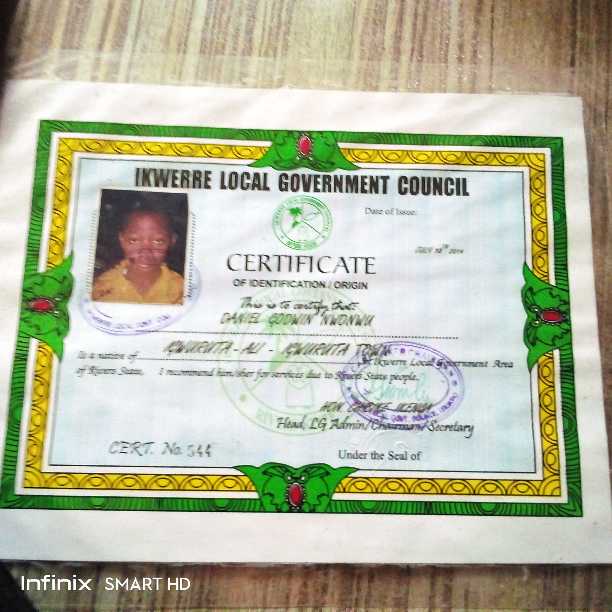 IKWERRE LOCAL GOVERNMENT COUNCIL
Date of Issue:
JULY 10TH 2014
CERTIFICATE
OF IDENTIFICATION / ORIGIN
This is to certify that:
DANIEL GODWIN NWONWU
is a native of IGWURUTA - ALI - IGWURUTA TOWN of Ikwerre Local Government Area
of Rivers State. I recommend him/her for services due to Rivers State people.
HON.
Head, LG Admin/Chairman/Secretary
CERT. No. 544
Under the Seal of
Infinix SMART HD